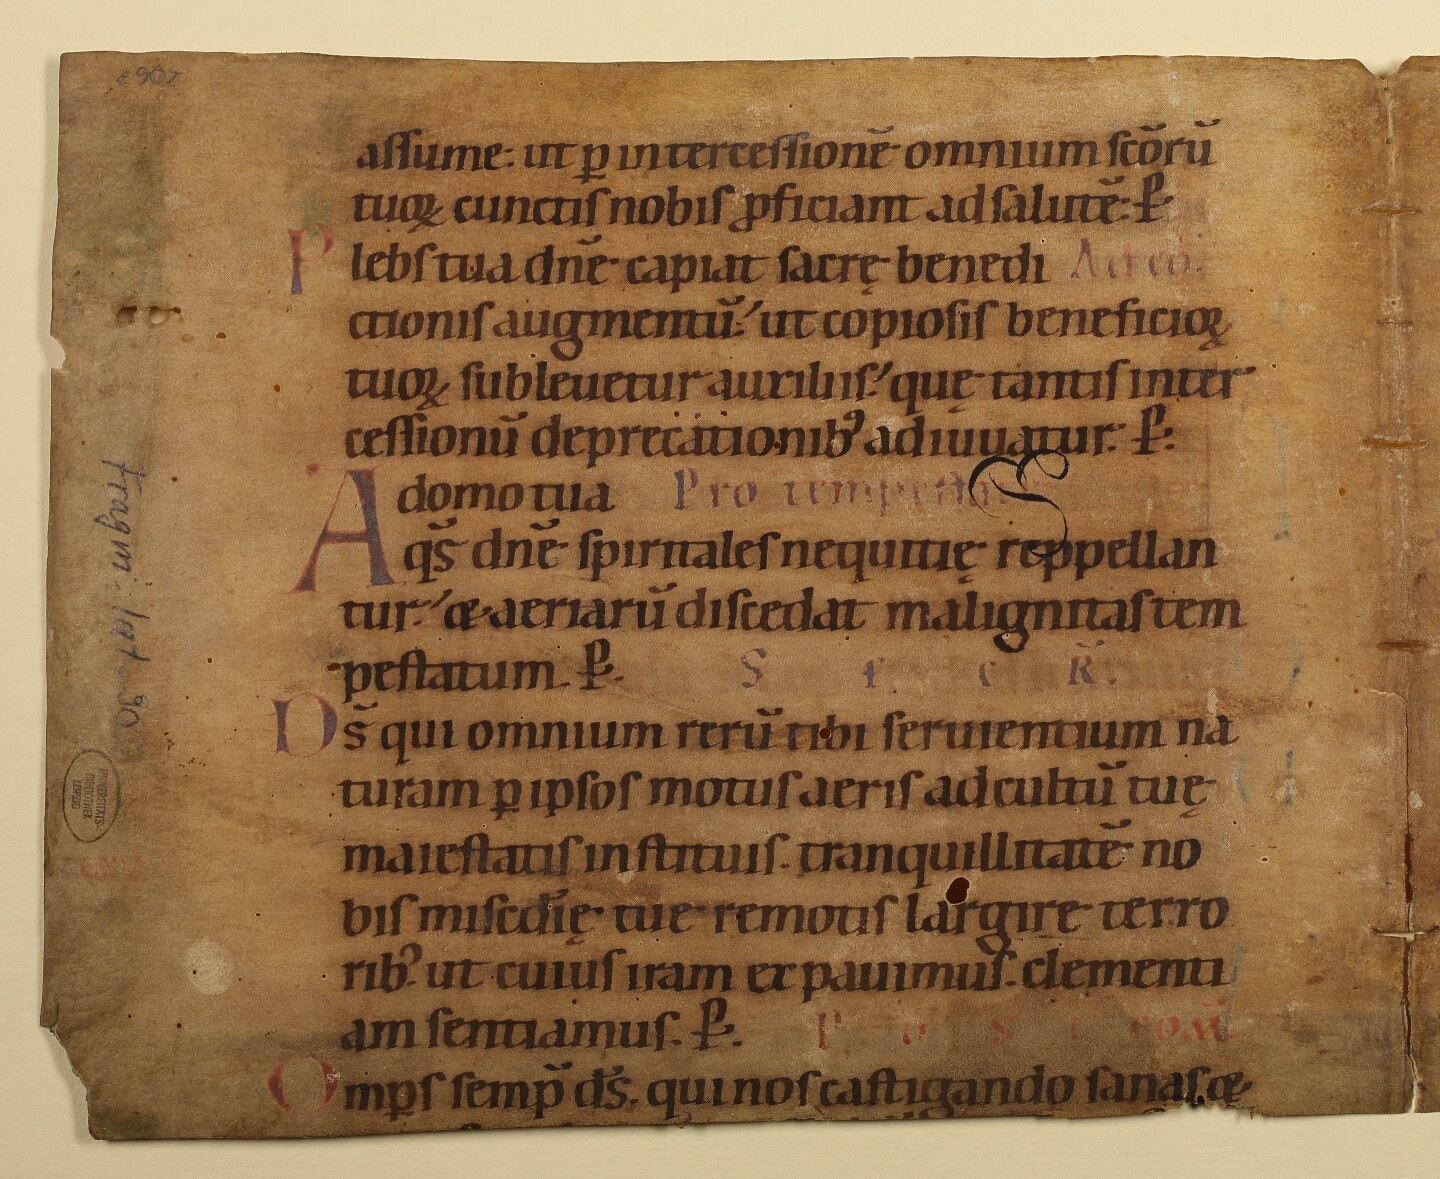 assume: ut ꝑ intercessionē omnium scōrū
tuoꝝ cunctis nobis ꝓficiant ad salutē: P̱
Plebs tua dn̄e capiat sacrę benedi Ad cō.
ctionis augmentū: ut copiosis beneficioꝝ
tuoꝝ subleuetur auxiliis: quę tantis inter
cessionū deprecationibꝰ adiuuatur. P̱
A domo tua Pro tempestate
qs̄ dn̄e spiritales nequitię reppellan
tur: & aeriarū discedat malignitas tem
pestatum. P̱. S E C R̄.
Ds̄ qui omnium rerū tibi seruientium na
turam ꝑ ipsos motus aeris ad cultū tuę
maiestatis instituis. tranquillitatē no
bis misc̄dię tue remotis largire terro
ribꝰ. ut cuius iram expauimus. clementi
am sentiamus. P̱. P O S T COM̄
Omp̄s semp̄ ds̄. qui nos castigando sanas. &
Fragm. lat. 90
UNIVERSITÄTS-
BIBLIOTHEK
LEIPZIG